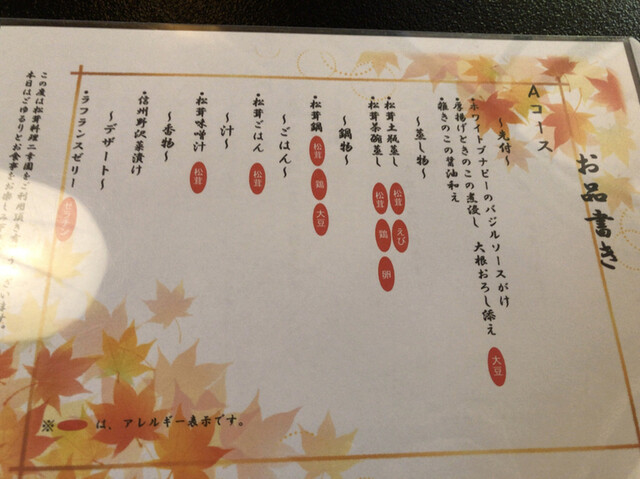 お品書き
Aコース
～先付～
•ホワイトブナピーのバジルソースがけ
•唐揚げときのこの煮浸し 大根おろし添え 大豆
•雑きのこの醤油和え
～蒸し物～
•松茸土瓶蒸し 松茸 えび
•松茸茶碗蒸し 松茸 鶏 卵
～鍋物～
•松茸鍋 松茸 鶏 大豆
～ごはん～
•松茸ごはん 松茸
～汁～
•松茸味噌汁 松茸
～香物～
•信州野沢菜漬け
～デザート～
•ラフランスゼリー ゼラチン
この度は松茸料理二幸園をご利用頂き
本日はごゆるりとお食事をお楽しみ
※ は、アレルギー表示です。